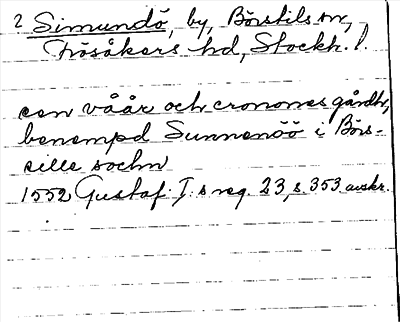 2 Simundö, by, Börstils sn,
Frösåkers hd, Stockh. l.
een våår och cronones gårdh,
benempd Sunnenöö i Börs-
tille sochn
1552 Gustaf I:s reg. 23, s. 353 avskr.